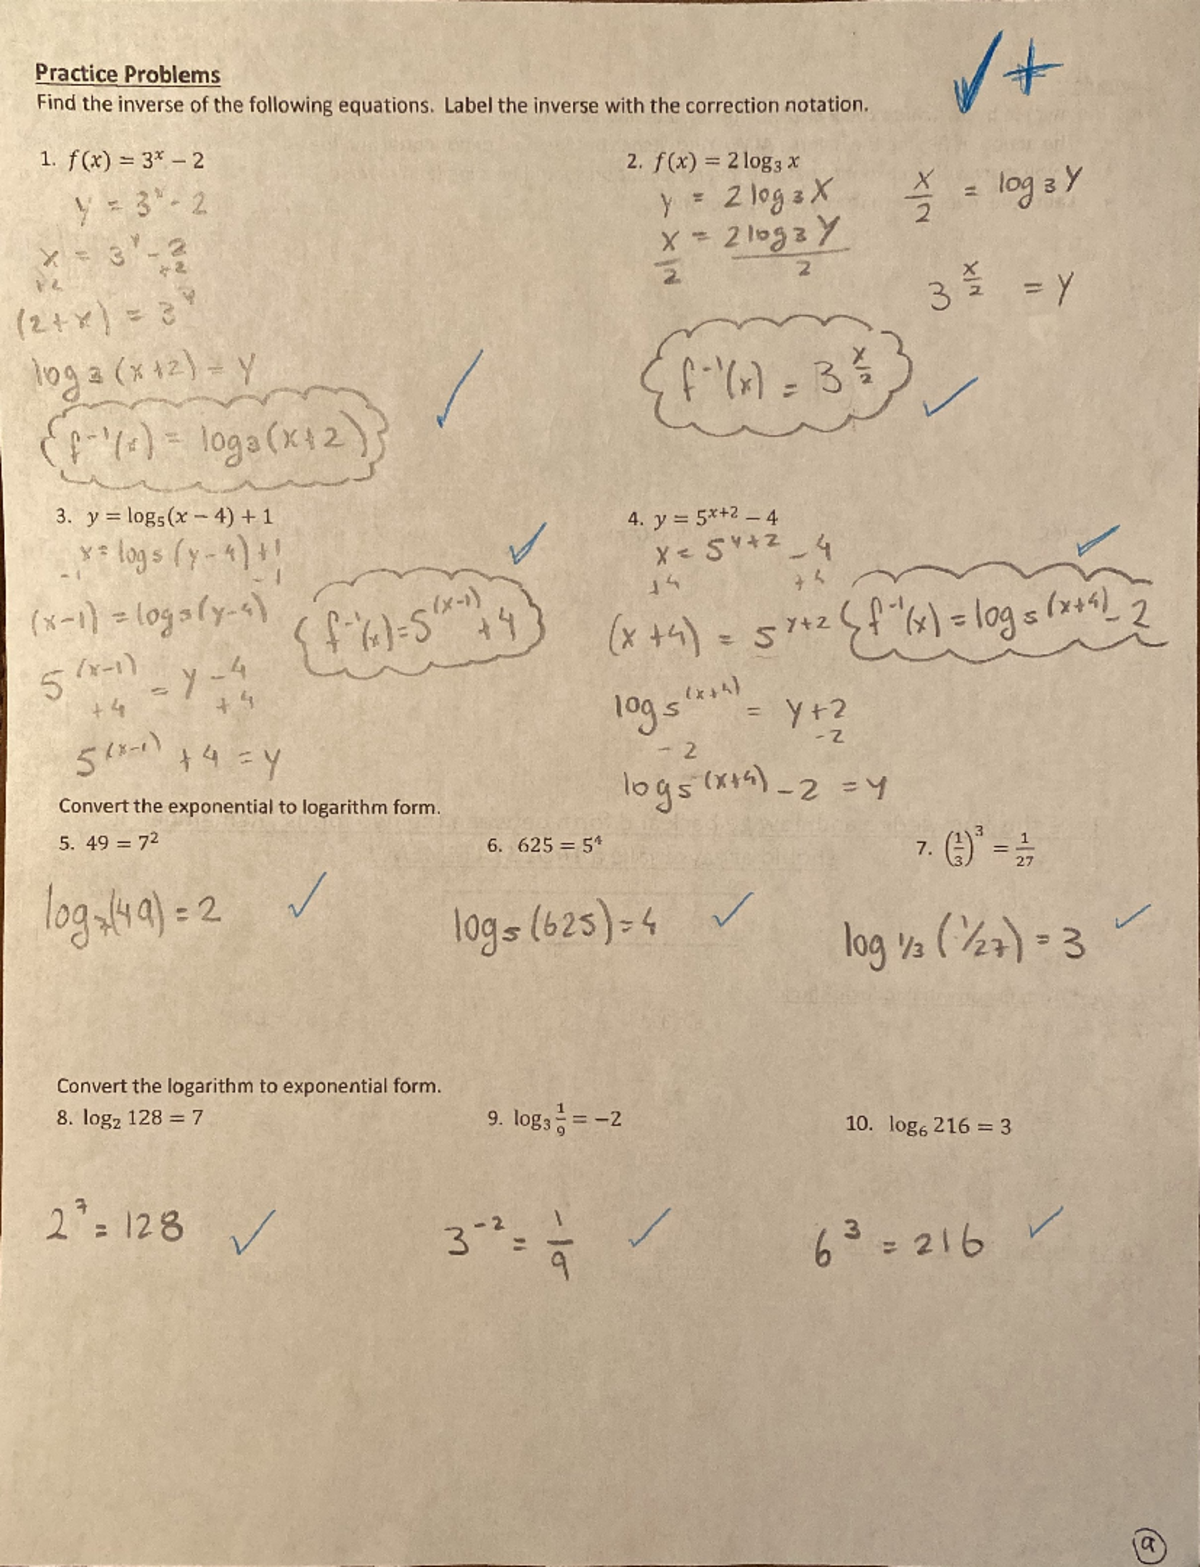 Practice Problems
Find the inverse of the following equations. Label the inverse with the correction notation.
✓+
1. f(x) = 3ˣ − 2
y = 3ˣ - 2
x = 3ʸ - 2
+2 +2
(2+x) = 3ʸ
log₃(x+2) = y
f⁻¹(x) = log₃(x+2)
2. f(x) = 2 log₃ x
y = 2 log₃ x
x = 2 log₃ y
2 2
x/2 = log₃ y
3^(x/2) = y
f⁻¹(x) = 3^(x/2)
3. y = log₅(x − 4) + 1
x = log₅(y-4)+1
-1 -1
(x-1) = log₅(y-4)
5⁽ˣ⁻¹⁾ = y-4
+4 +4
5⁽ˣ⁻¹⁾ + 4 = y
f⁻¹(x) = 5⁽ˣ⁻¹⁾ + 4
4. y = 5ˣ⁺² − 4
x = 5ʸ⁺² - 4
+4 +4
(x+4) = 5ʸ⁺²
log₅⁽ˣ⁺⁴⁾ = y+2
-2 -2
log₅(x+4) - 2 = y
f⁻¹(x) = log₅(x+4) - 2
Convert the exponential to logarithm form.
5. 49 = 7²
log₇(49) = 2
6. 625 = 5⁴
log₅(625) = 4
7. (1/3)³ = 1/27
log 1/3 (1/27) = 3
Convert the logarithm to exponential form.
8. log₂ 128 = 7
2⁷ = 128
9. log₃ 1/9 = −2
3⁻² = 1/9
10. log₆ 216 = 3
6³ = 216